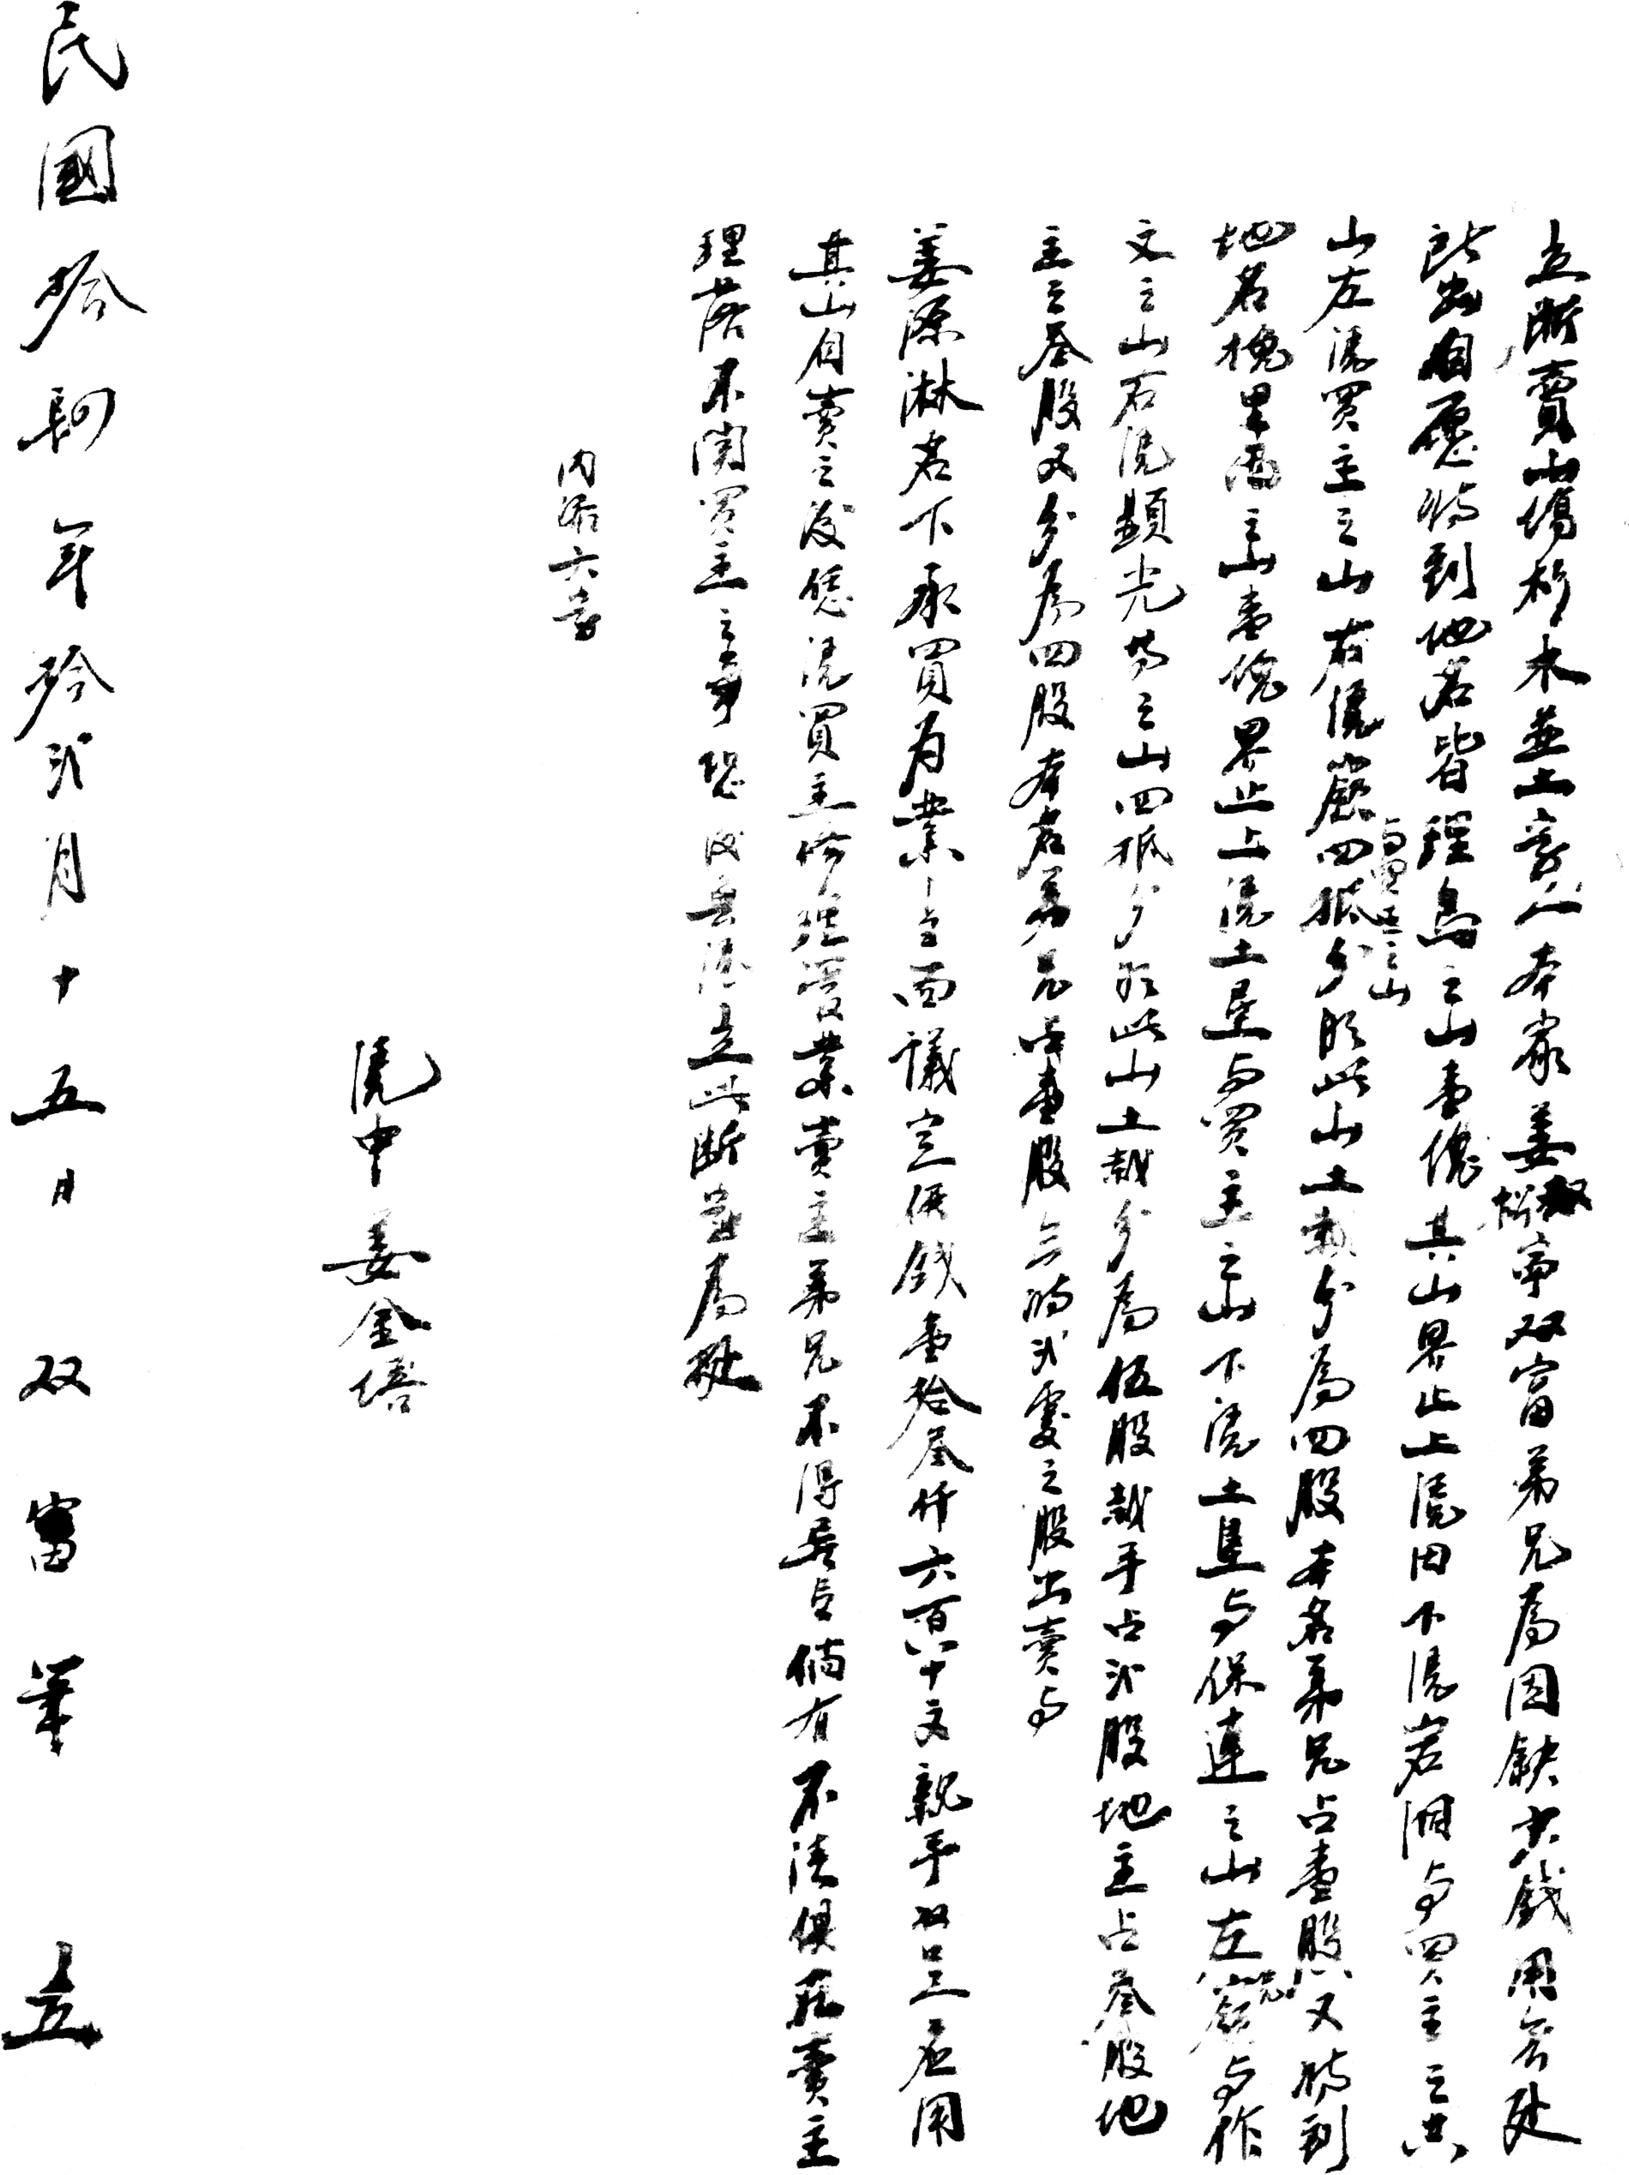 立断賣山塲杉木並土字人本家姜松寕双富弟兄為因缺少錢用無處
所出自愿将到地名皆理鳥之山壹塊其山界止上凴田下凴岩洞与買主之共
山左凴買主之山右凴嶺与買主之山四抵分明此山土栽分為四股本名弟兄占壹股又将到
地名槐里凸之山壹塊界止上凴土垦与買主之山下凴土垦与保連之山左凴嶺与作
文之山右凴顕光等之山四抵分明此山土栽分為伍股栽手占弍股地主占叁股地
主之叁股又分為四股本名弟兄占壹股亖将弍處之股出賣与
姜源淋名下承買為業當面議定價錢壹拾叁仟六百八十文親手收足應用
其山自賣之後凭凴買主修理管業賣主弟兄不得異言倘有不清俱在賣主
理落不関買主之事恐後無凴立此断字為㨿
内添六字
凴中 姜金培
民國拾捌年拾弍月十五日 双富筆 立